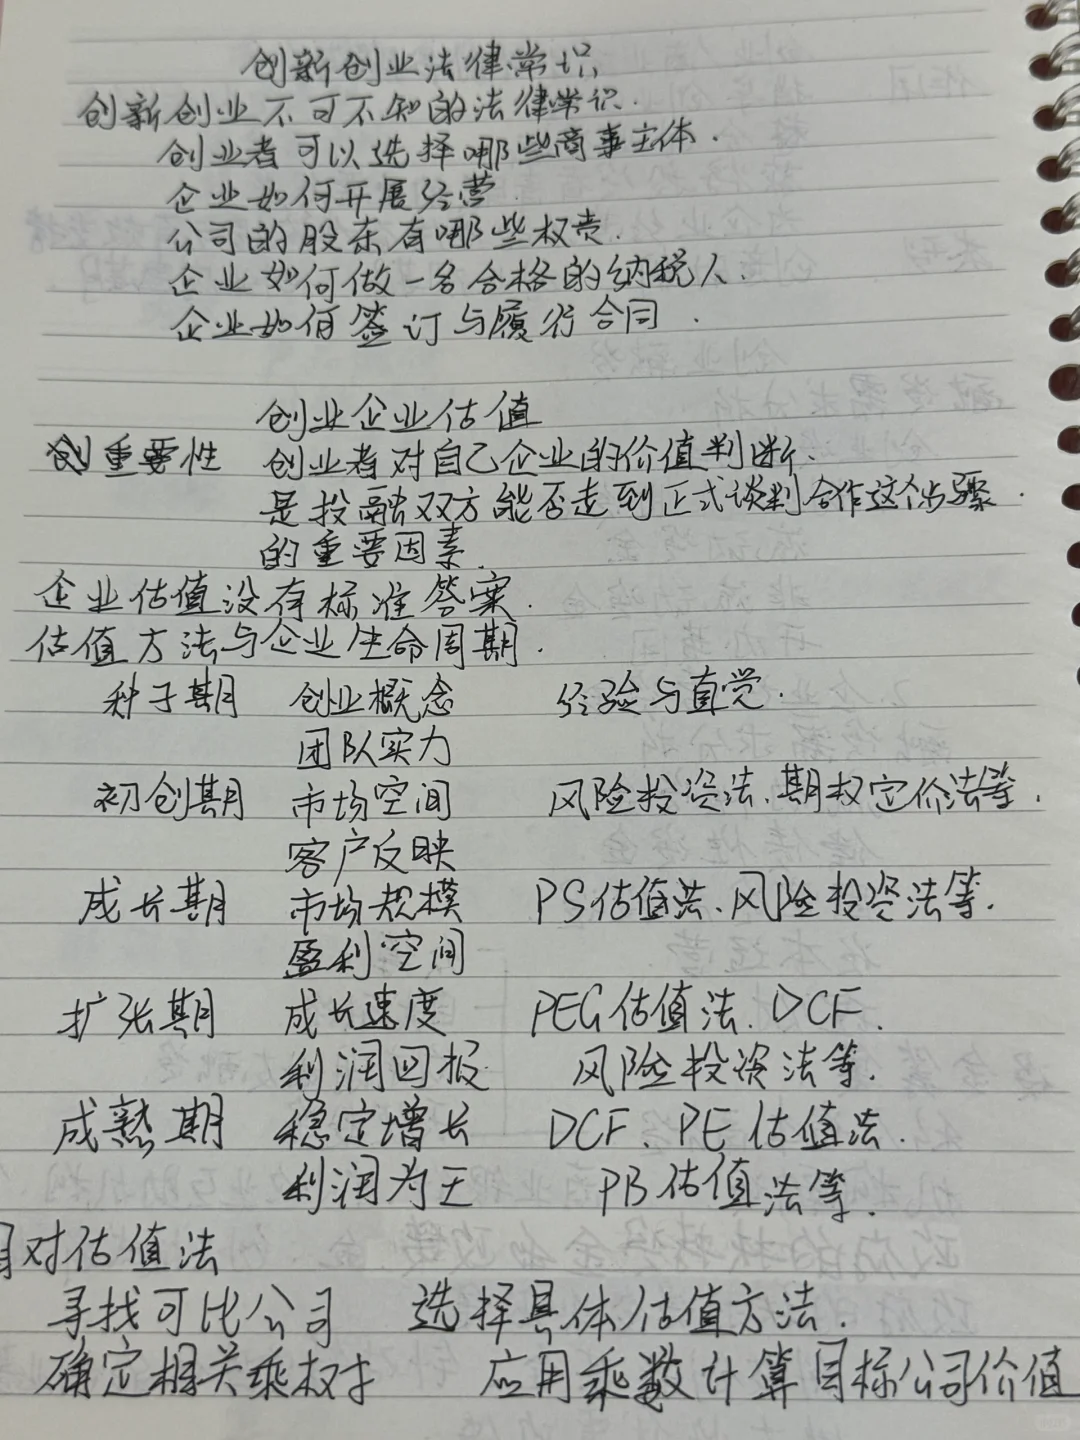 创新创业法律常识
创新创业不可不知的法律常识.
创业者可以选择哪些商事主体.
企业如何开展经营
公司的股东有哪些权责.
企业如何做一名合格的纳税人.
企业如何签订与履行合同.
创业企业估值
重要性 创业者对自己企业的价值判断.
是投融双方能否走到正式谈判合作这个步骤.
的重要因素.
企业估值没有标准答案.
估值方法与企业生命周期.
种子期 创业概念 经验与直觉.
团队实力
初创期 市场空间 风险投资法、期权定价法等.
客户反映
成长期 市场规模 PS估值法、风险投资法等.
盈利空间
扩张期 成长速度 PEG估值法、DCF.
利润回报 风险投资法等.
成熟期 稳定增长 DCF、PE估值法.
利润为王 PB估值法等.
对估值法
寻找可比公司 选择具体估值方法.
确定相关乘 应用乘数计算目标公司价值